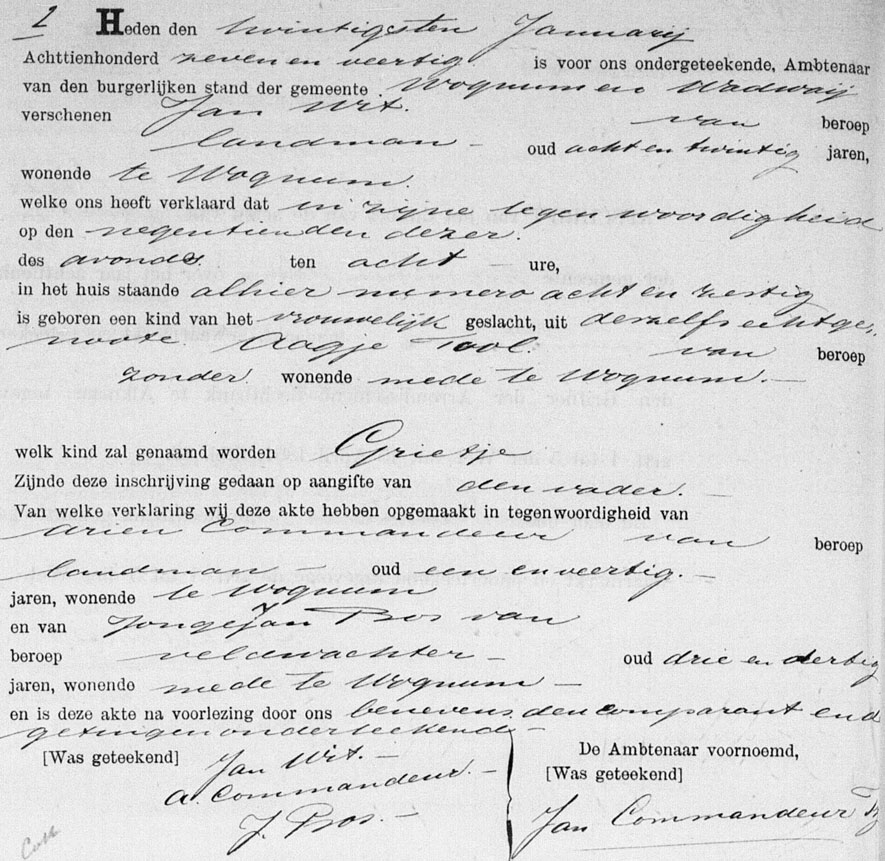 2 Heden den twintigsten Januarij
Achttienhonderd zeven en veertig is voor ons ondergeteekende, Ambtenaar
van den burgerlijken stand der gemeente Wognum en Wadwaij
verschenen Jan Wit. van beroep
landman - oud acht en twintig jaren,
wonende te Wognum.
welke ons heeft verklaard dat in zijne tegenwoordigheid
op den negentienden dezer.
des avonds ten acht - ure,
in het huis staande alhier numero acht en zestig
is geboren een kind van het vrouwelijk geslacht, uit deszelfs echtge=
noote Aagje Tool. van beroep
zonder wonende mede te Wognum. -
welk kind zal genaamd worden Grietje
Zijnde deze inschrijving gedaan op aangifte van den vader. -
Van welke verklaring wij deze akte hebben opgemaakt in tegenwoordigheid van
Arien Commandeur van beroep
landman - oud een en veertig. -
jaren, wonende te Wognum
en van Jongejan Bos van
beroep veldwachter - oud drie en dertig
jaren, wonende mede te Wognum -
en is deze akte na voorlezing door ons benevens den comparant en d
getuigen onderteekend. -
[Was geteekend] Jan Wit. -
A. Commandeur. -
J. Bos. -
De Ambtenaar voornoemd,
[Was geteekend]
Jan Commandeur